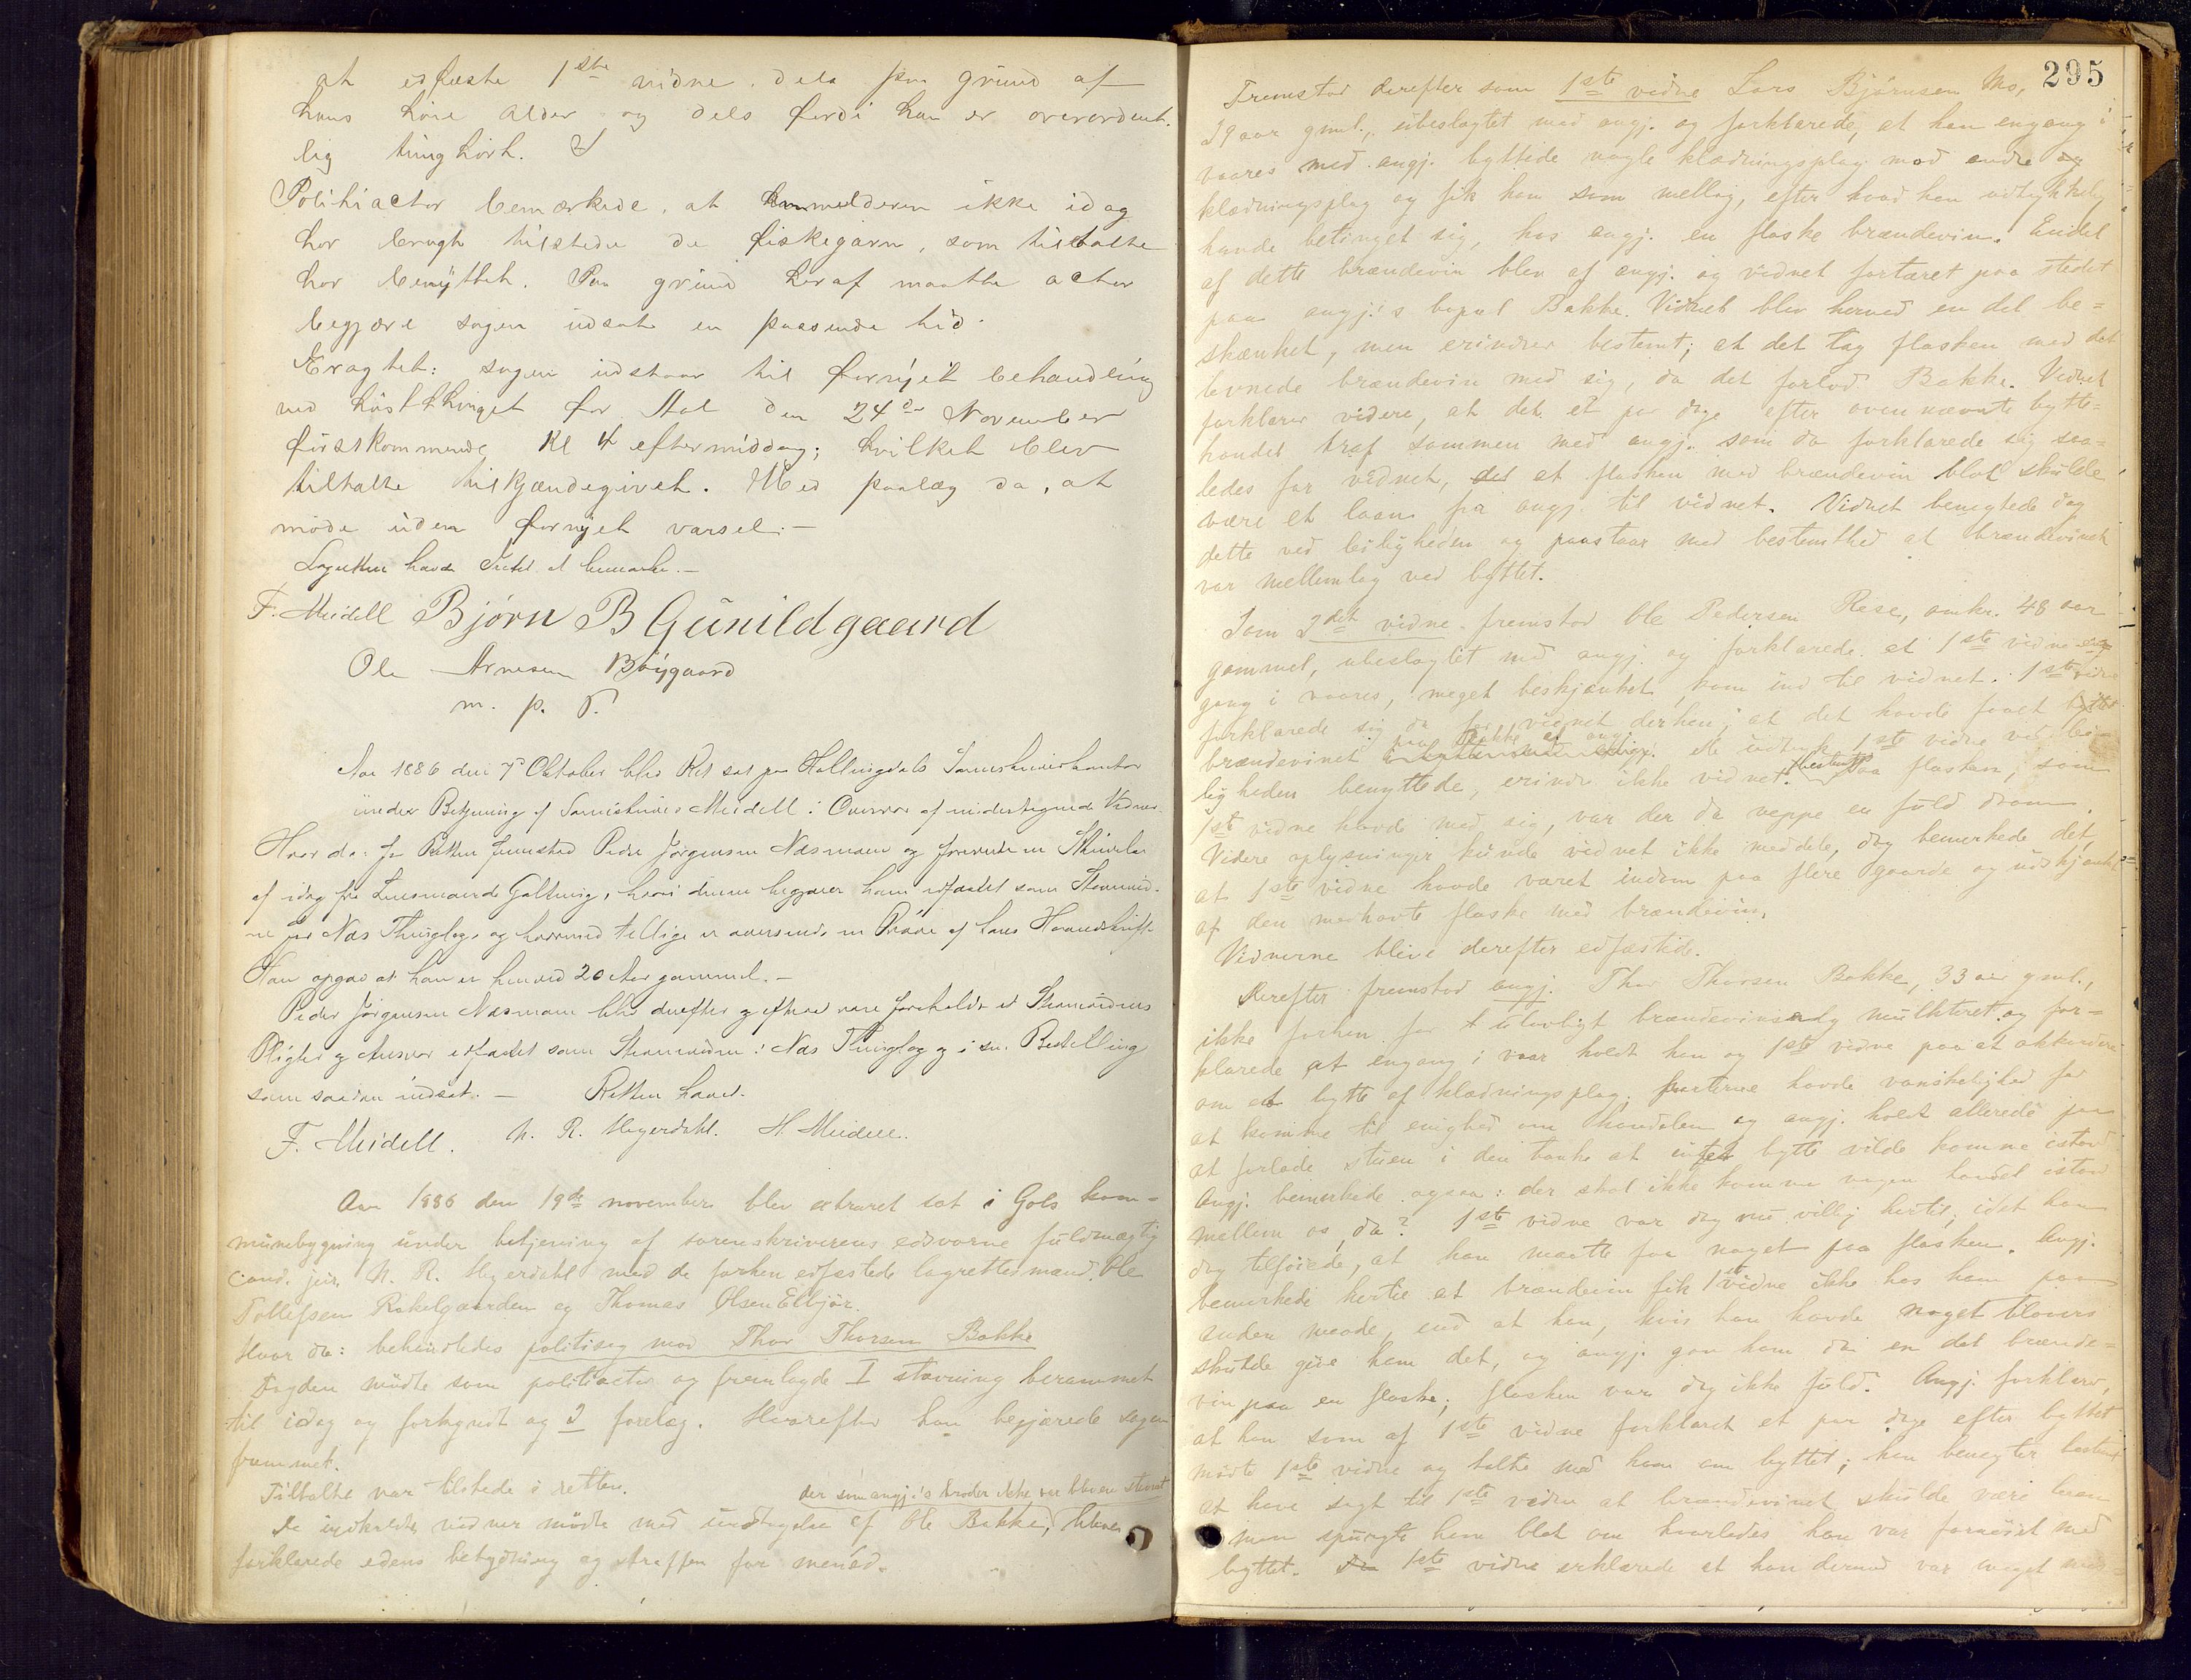 at edfæste 1ste vidne dels paa grund af
hans höie alder og dels fordi han er overordent-
lig tunghört.
Politiactor bemærkede, at anmelderen ikke idag
har bragt tilstede de fiskegarn, som tiltalte
har benyttet. Paa grund heraf maatte actor
begjære sagen udsat en passende tid.
Eragtet: sagen udstaar til fornyet behandling
ved höstthinget for Aal den 24de November
förstkommende Kl 4 eftermiddag; hvilket blev
tiltalte tilkjendegivet. Med paalæg da, at
möde uden fornyet varsel. –
Lagretten havde Intet at bemærke. –
F. Meidell Björn B Gunildgaard
Ole Arnesen Böygaard
m. p. P.
Aar 1886 den 7de Oktober blev Ret sat paa Hallingdals Sorenskriverkontor
under Betjening af Sorenskriver Meidell i Overvær af undertegnede Vidner
Hvor da: for Retten fremstod Peder Jörgensen Næsmoen og foreviste en Skrivelse
af idag fra Lensmand Galtung, hvori denne begjærer ham edfæstet som Stevnevid-
ne for Næs Thinglag, og hvorved tillige er oversendt en Pröve af hans Haandskrift.
Han opgav at han er henved 20 Aar gammel. –
Peder Jörgensen Næsmoen blev derefter og efter at være foreholdt et Stevnevidnes
Pligter og Ansvar edfæstet som Stevnevidne i Næs Thinglag og i sin Bestilling
som saadan indsat. – Retten hævet.
F. Meidell. N. R. Heyerdahl. H. Meidell.
Aar 1886 den 19de november blev extraret sat i Gols kom-
munebygning under betjening af sorenskriverens edsvorne fuldmægtig
cand. jur. N. R. Heyerdahl med de forhen edfæstede lagrettesmænd Ole
Tollefsen Rakelgaarden og Thomas Olsen Elbjör.
Hvor da: behandledes politisag mod Thor Thorsen Bakke
Fogden mödte som politiactor og fremlagde I stævning berammet
til idag og forkyndt og 2 forelæg. Hvorefter han begjærede sagen
fremmet.
Tiltalte var tilstede i retten.
der som angj.'s broder ikke var bleven stevnet
De indkaldte vidner mödte med undtagelse af Ole Bakke, bleve
forklarede edens betydning og straffen for mened.
295
Fremstod derefter som 1ste vidne Lars Björnsen Mo,
29 aar gml., ubeslægtet med angj. og forklarede, at han engang i
vaares med angj. byttede nogle klædningsplag mod andre
klædningsplag og fik han som mellag, efter hvad han udtrykkelig
havde betinget sig, hos angj. en flaske brændevin. Endel
af dette brændevin blev af angj. og vidnet fortæret paa stedet
paa angj.'s bopæl Bakke. Vidnet blev herved en del be=
skænket, men erindrer bestemt, at det tog flasken med det
levnede brændevin med sig, da det forlod Bakke. Vidnet
forklarer videre, at det et par dage efter ovennævnte bytte-
handel traf sammen med angj. som da forklarede sig saa=
ledes for vidnet, at flasken med brændevin blot skulde
være et laan fra angj. til vidnet. Vidnet benegtede dog
dette ved leiligheden og paastaar med bestemthed at brændevinet
var mellemlag ved byttet.
Som 2det vidne fremstod Ole Pedersen Rese, omkr. 48 aar
gammel, ubeslægtet med angj. og forklarede, at 1ste vidne en
gang i vaares, meget beskjænket, kom ind til vidnet. 1ste vidne
forklarede sig da for vidnet derhen, at det havde faaet
paa Bakke af angj.
brændevinet. De udtryk 1ste vidne ved lei-
ligheden benyttede, erindrer ikke vidnet bestemt. Paa flasken, som
1ste vidne havde med sig, var der da neppe en fuld dram.
Videre oplysninger kunde vidnet ikke meddele, dog bemerkede det,
at 1ste vidne havde været indom paa flere gaarde og udskjænket
af den medhavte flaske med brændevin.
Vidnerne bleve derefter edfæstede.
Derefter fremstod angj. Thor Thorsen Bakke, 33 aar gml.,
ikke forhen for ulovligt brændevinssalg mulkteret og for-
klarede at engang i vaar holdt han og 1ste vidne paa at akkordere
om et bytte af klædningsplag. Parterne havde vanskelighed for
at komme til enighed om handelen og angj. holdt allerede paa
at forlade stuen i den tanke at intet bytte vilde komme istand
Angj. bemerkede ogsaa: der skal ikke komme nogen handel istand
mellem os, da? 1ste vidne var dog nu villig hertil, idet han
dog tilföiede, at han maatte faa noget paa flasken. Angj.
bemerkede hertil at brændevin fik 1ste vidne ikke hos ham paa
anden maade, end at han, hvis han havde noget tilovers
skulde give ham det, og angj. gav ham da en del brænde=
vin paa en flaske; flasken var dog ikke fuld. Angj. forklarer,
at han som af 1ste vidne forklaret et par dage efter byttet
mödte 1ste vidne og talte med ham om byttet; han benegter bestemt
at have sagt til 1ste vidne at brændevinet skulde være laan
men spurgte ham blot om hvorledes han var fornöiet med
byttet. 1ste vidne erklærede at han dermed var meget